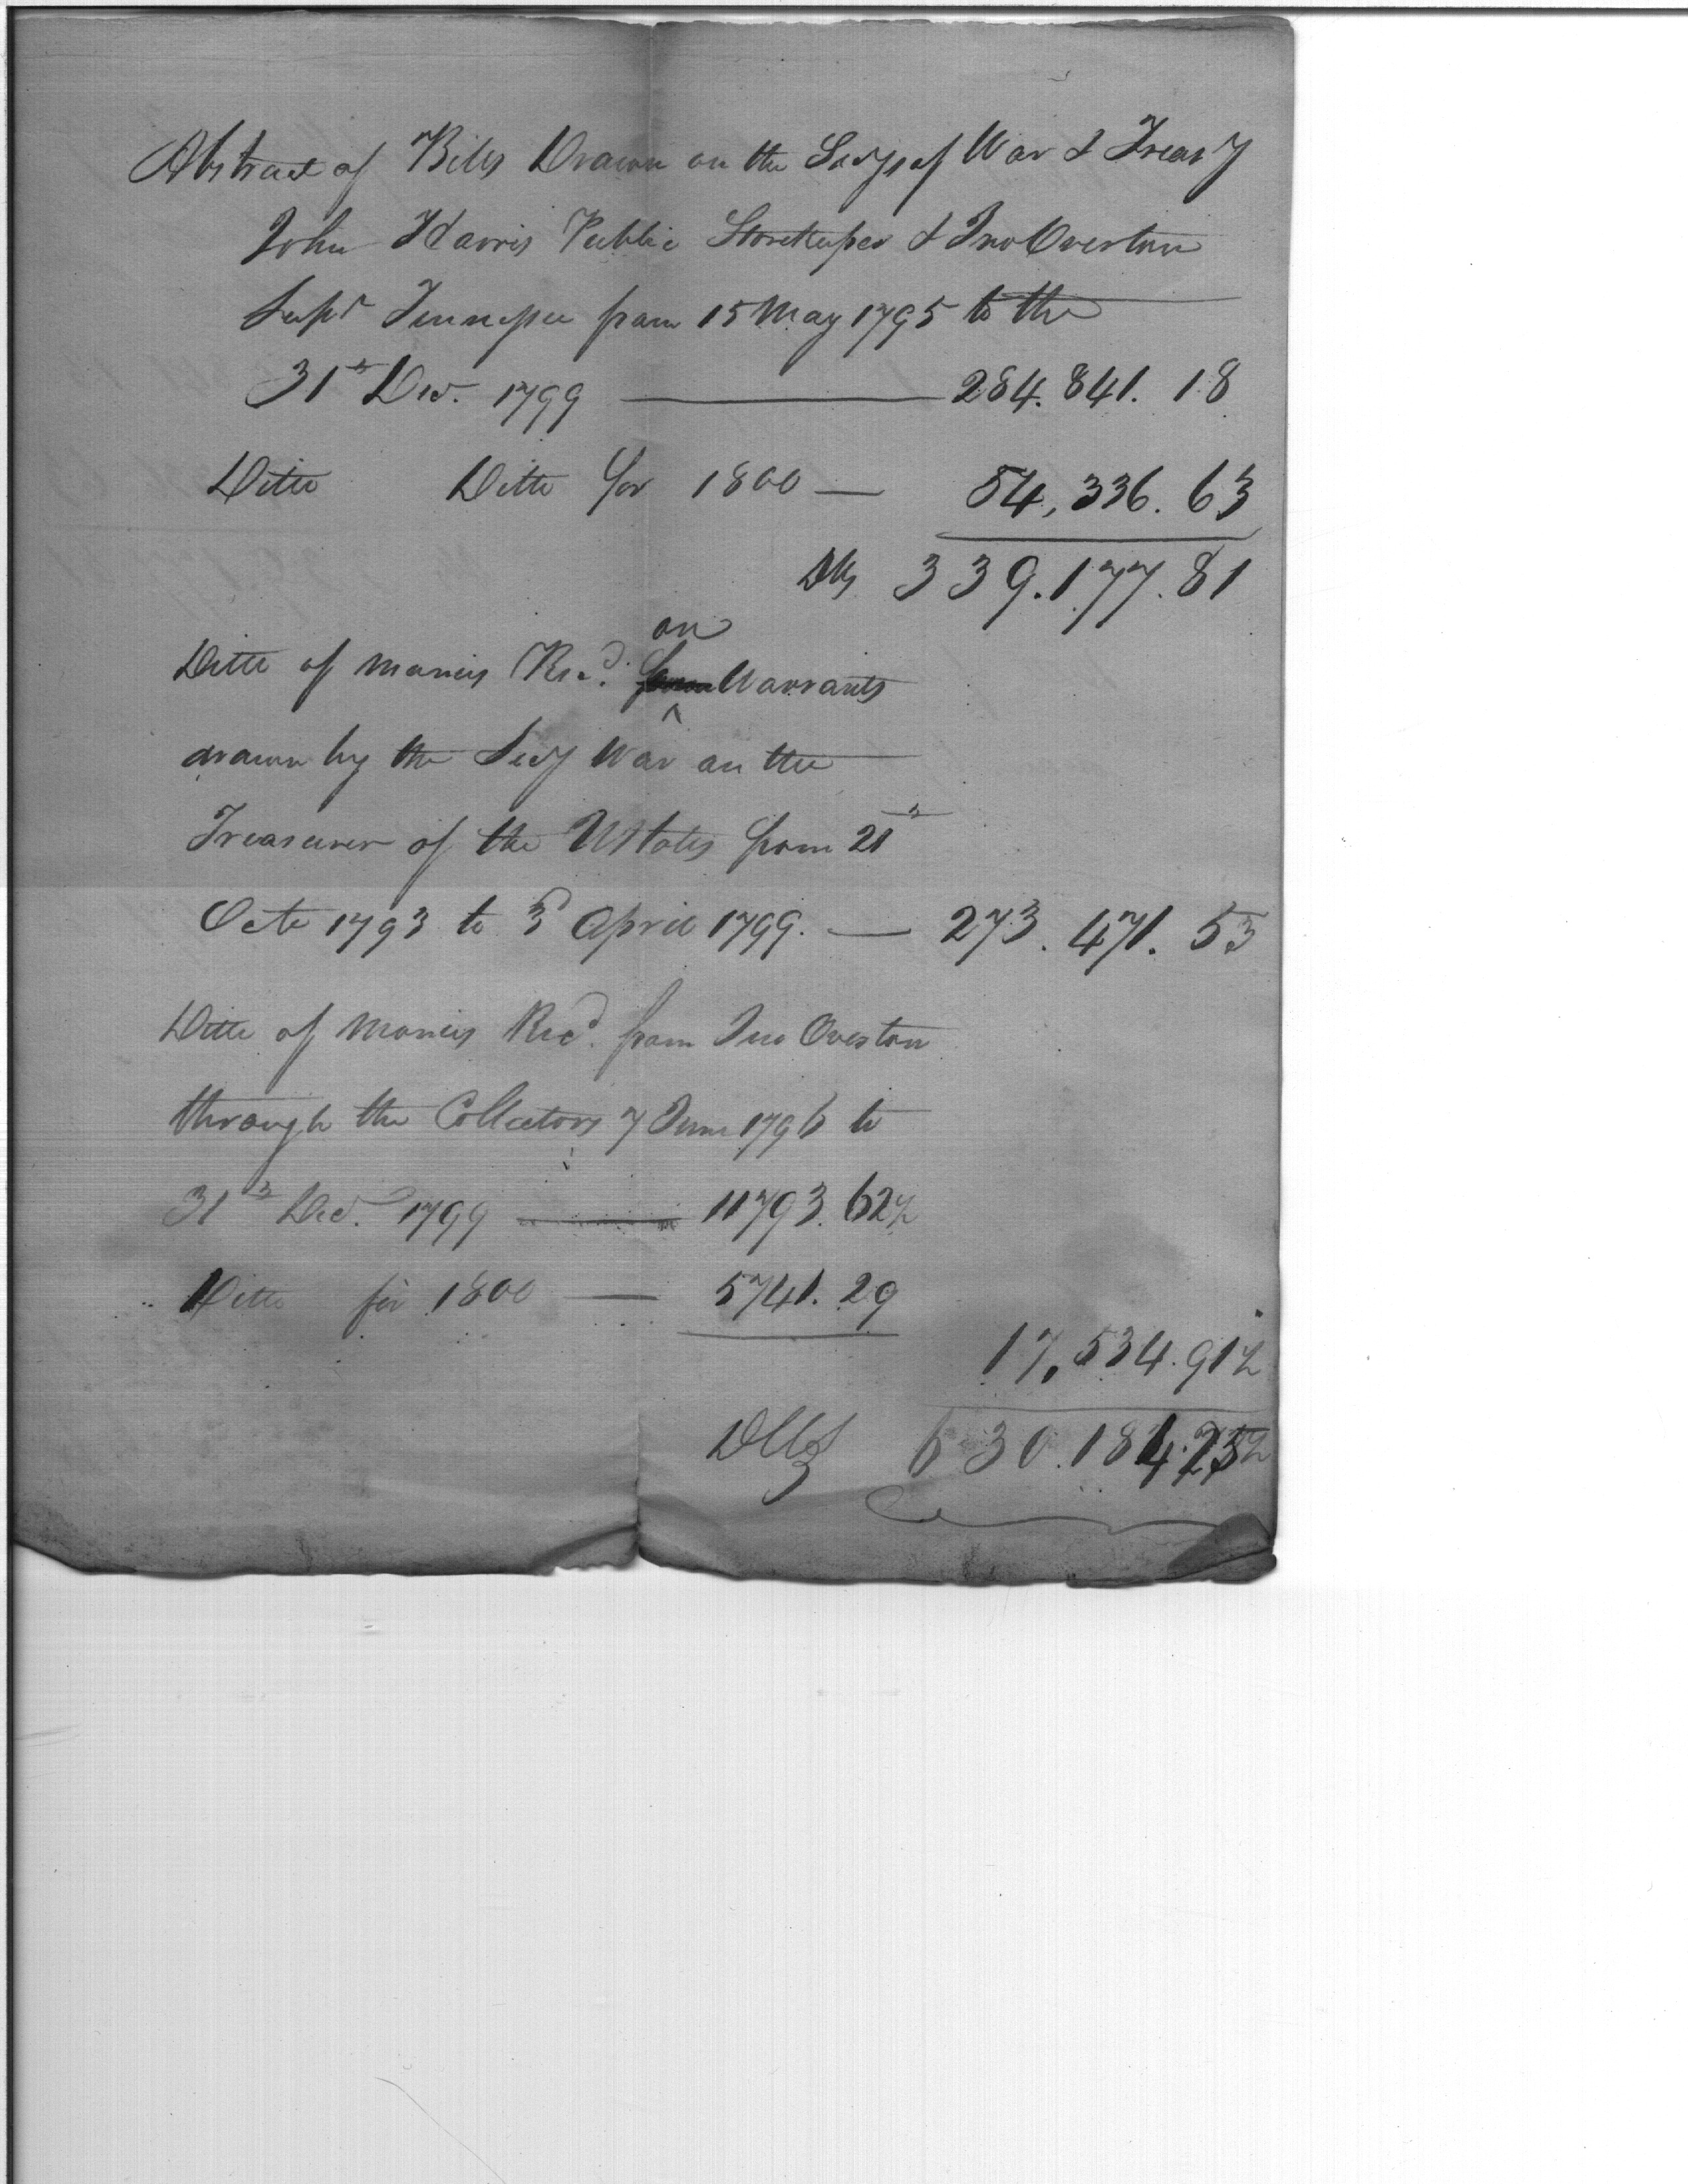 Abstract of Bills Drawn on the Secys of War & Treasy
John Harris Public Storekeeper & Jno Overton
Supr Tennessee from 15 May 1795 to the
31st Decr. 1799 — 284.841. 18
Ditto Ditto for 1800 — 54,336. 63
Dlls 339.177.81
on
Ditto of monies Recd. from Warrants
drawn by the Secy War on the
Treasurer of the UStates from 21st
Octo 1793 to 3d April 1799. — 273.471. 53
Ditto of Monies Recd. from Jno Overton
through the Collectors 7 June 1796 to
31st Decr. 1799 — 11793. 62½
Ditto for 1800 — 5741. 29
17,534.91½
Dlls 630.184.23½